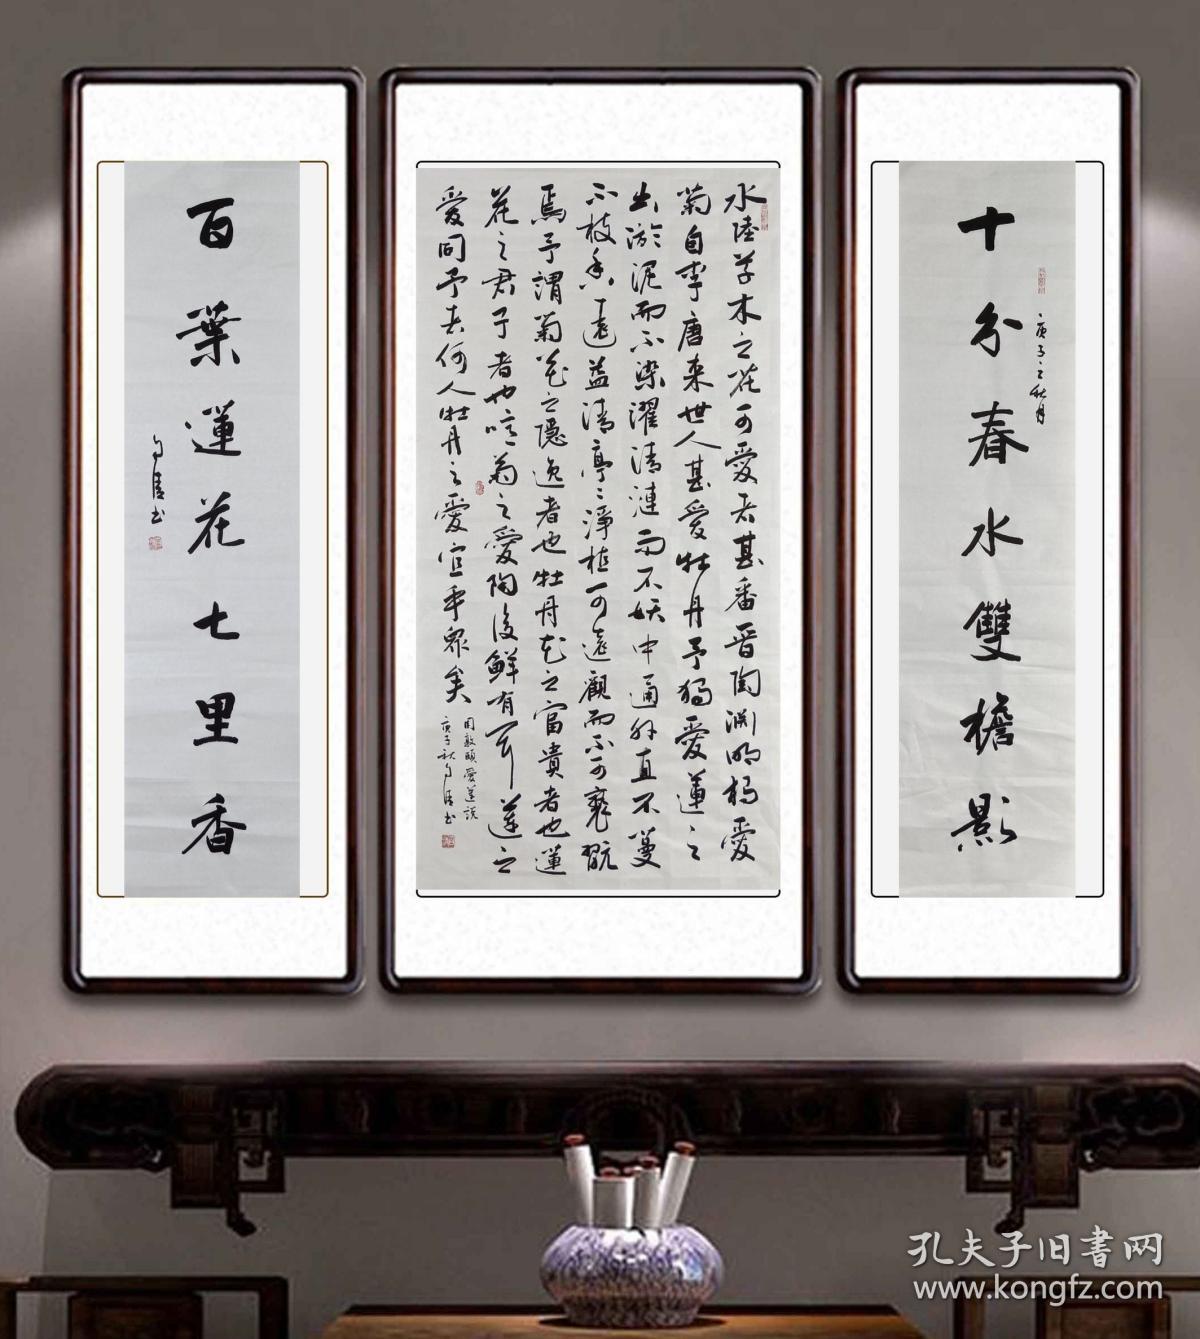 十分春水雙檐影
庚子之秋月
水陸草木之花可愛者甚番晋陶渊明獨愛
菊自李唐来世人甚愛牡丹予獨愛蓮之
出淤泥而不染濯清漣而不妖中通外直不蔓
不枝香遠益清亭亭淨植可遠觀而不可褻翫
焉予謂菊花之隱逸者也牡丹花之富貴者也蓮
花之君子者也噫菊之愛陶後鮮有聞蓮之
愛同予者何人牡丹之愛宜乎眾矣
周敦頤愛蓮説
庚子秋书
百葉蓮花七里香
书
孔夫子旧書网
www.kongfz.com